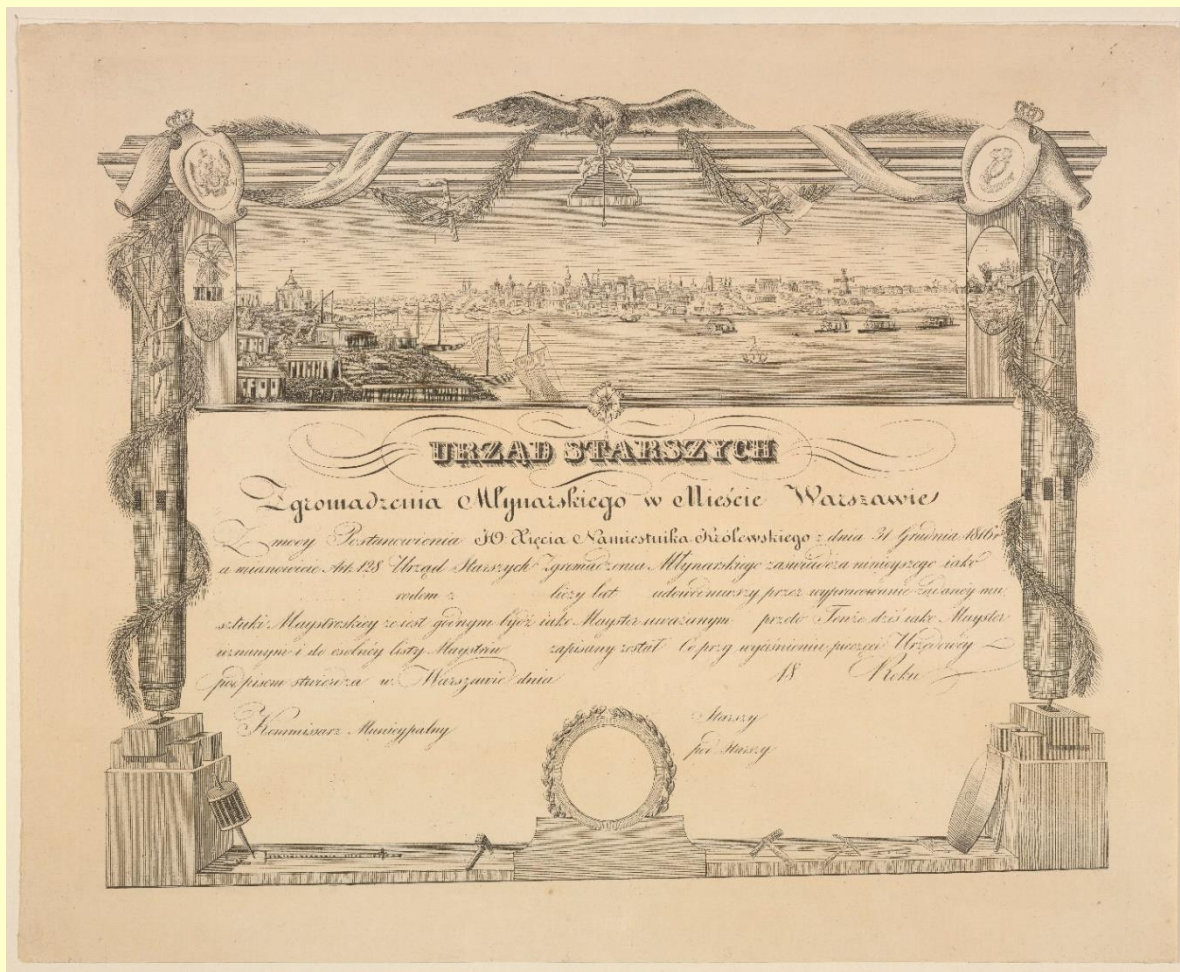 URZĄD STARSZYCH
Zgromadzenia Młynarskiego w Mieście Warszawie
Z mocy Postanowienia JO Xięcia Namiestnika Królewskiego z dnia 31 Grudnia 1816 r
a mianowicie Art. 128 Urząd Starszych Zgromadzenia Młynarskiego zaświadcza ninieyszego iako
rodem z liczy lat udowodniwszy przez wypracowanie zadanéy mu
sztuki Maystrskiéy że iest godnym bydź iako Mayster uważanym przeto Tenże dziś iako Mayster
uznanym i do ogólnéy listy Maystrów zapisany został Co przy wyciśnieniu pieczęci Urzędowéy
podpisem stwierdza w Warszawie dnia 18 Roku
Kommissarz Municypalny
Starszy
pod Starszy